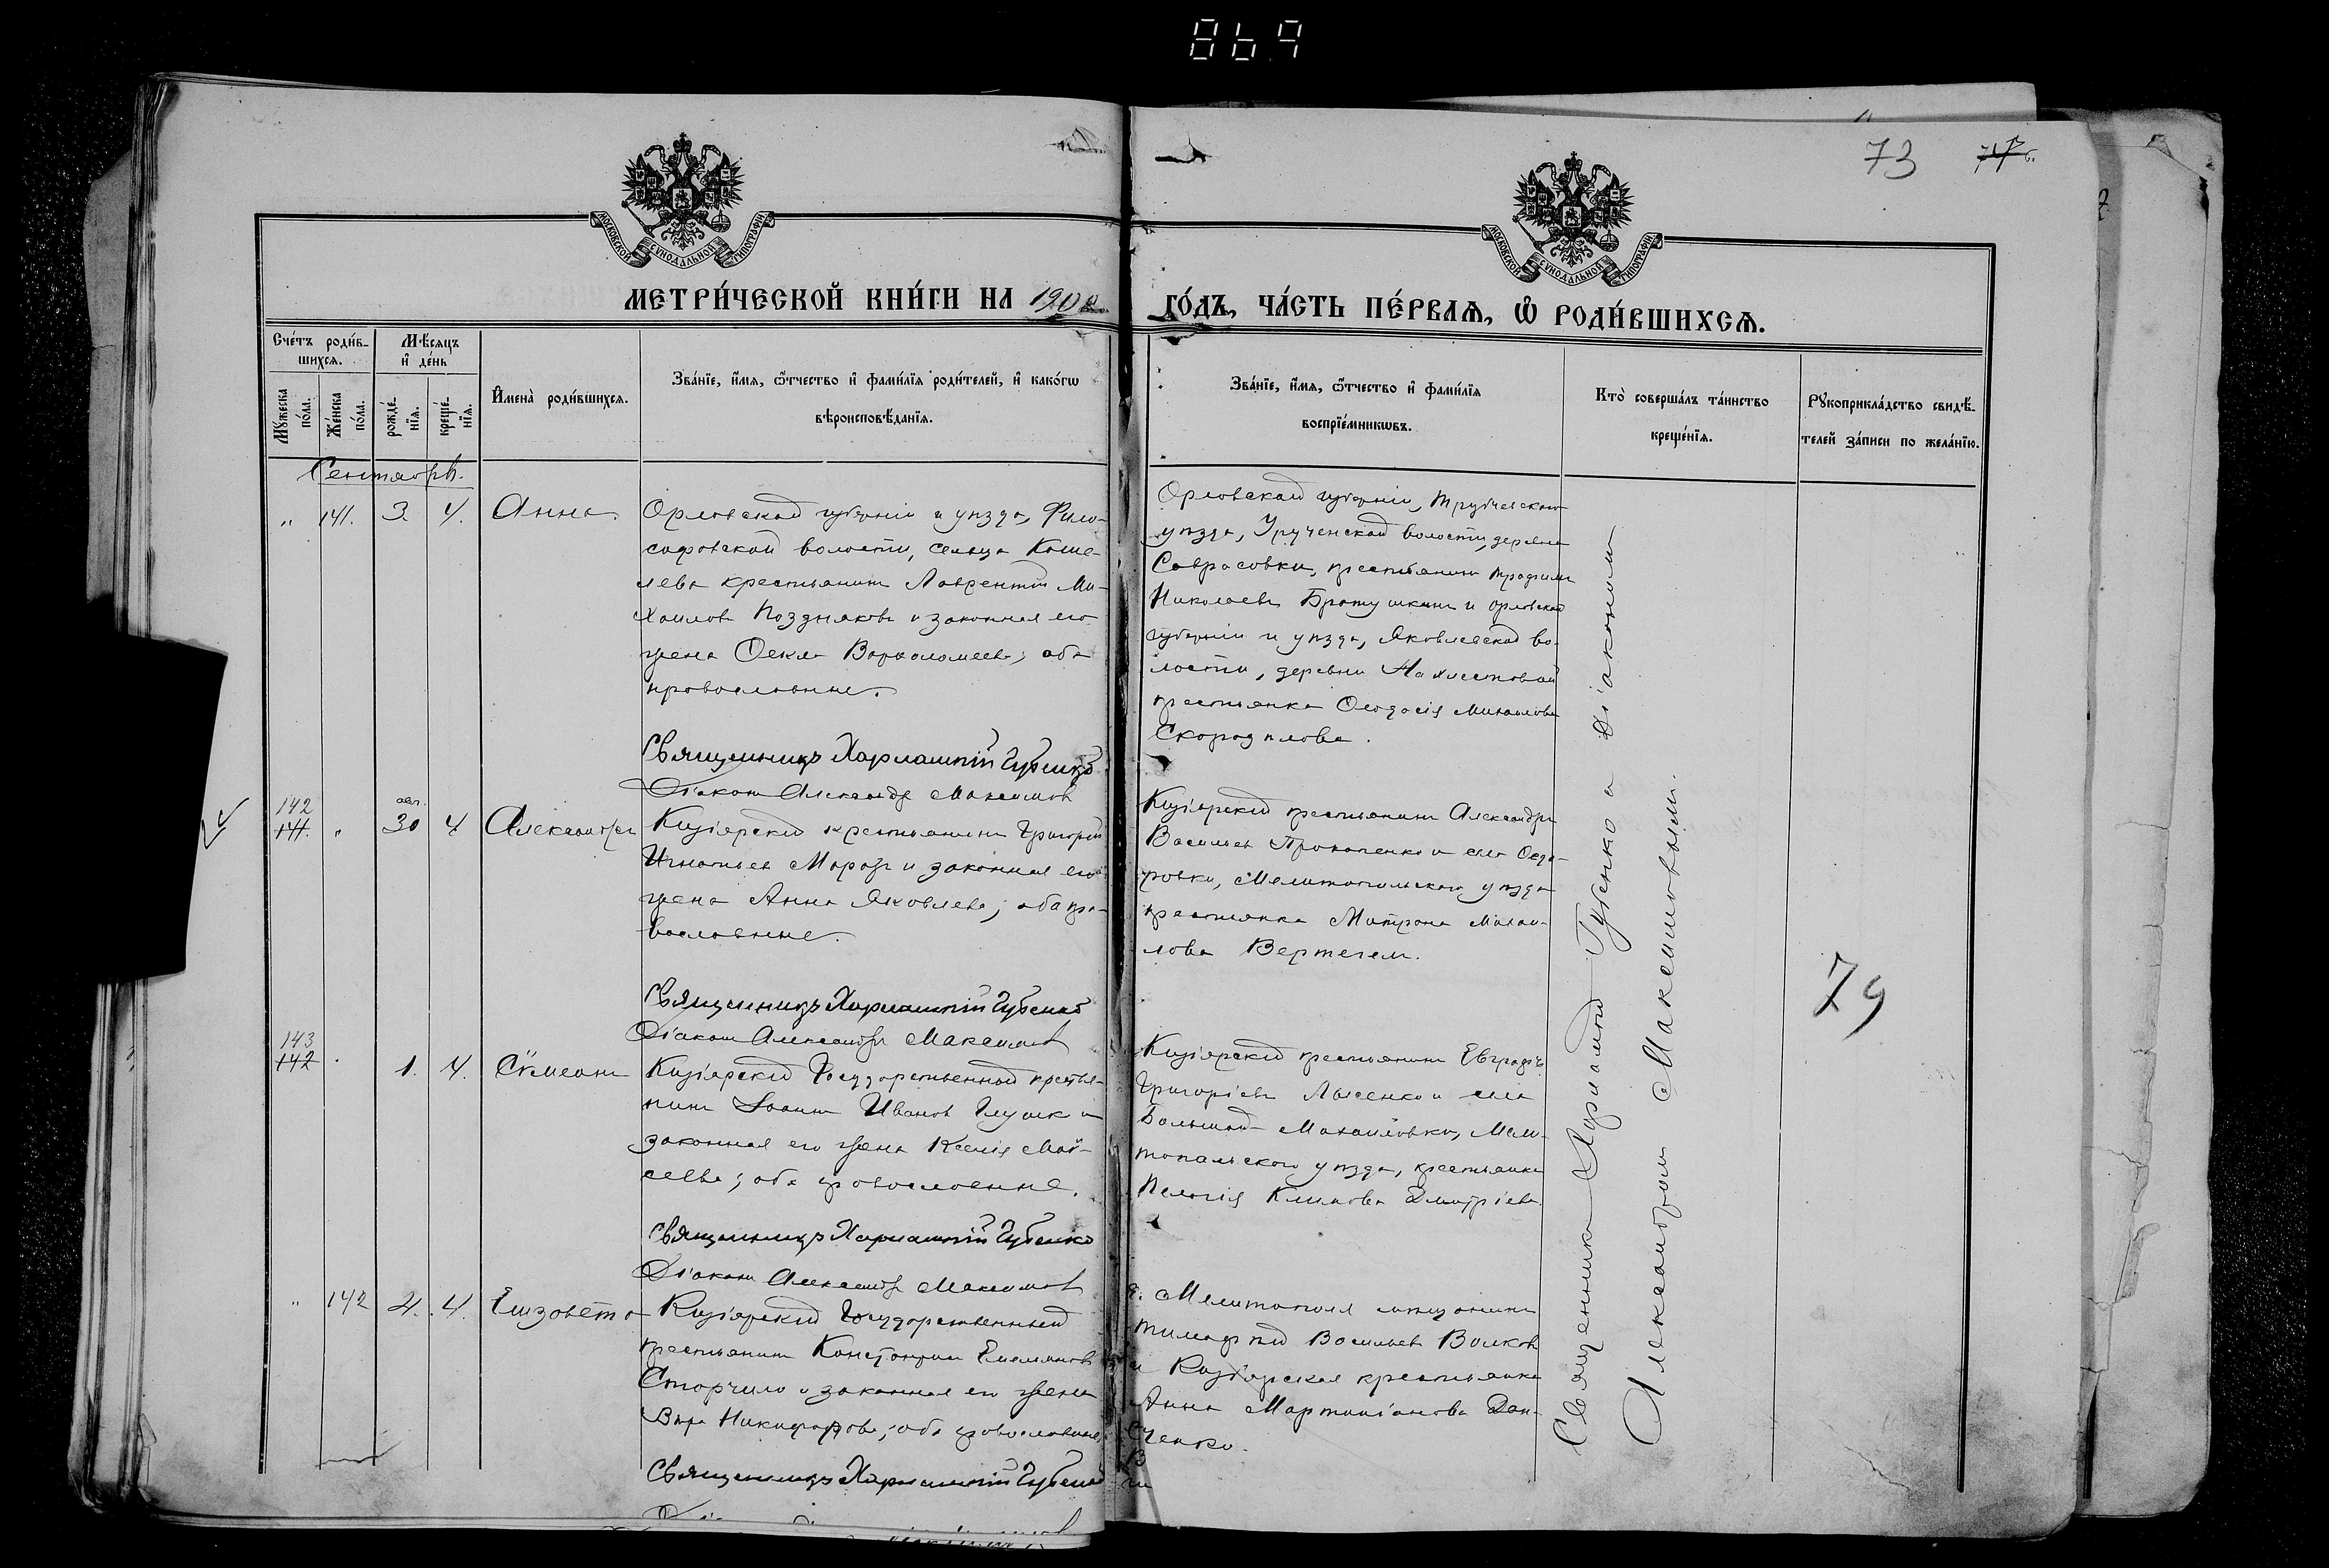 869
73
МОСКОВСКОЙ СУНОДАЛЬНОЙ ТИПОГРАФІИ
МОСКОВСКОЙ СУНОДАЛЬНОЙ ТИПОГРАФІИ
МЕТРИ́ЧЕСКОЙ КНИ́ГИ НА 1900
ГО́ДЪ, ЧА́СТЬ ПЕ́РВАѦ, Ѽ РОДИ́ВШИХСѦ.
Сче́тъ роди́в-
шихсѧ.
Мѣ́сѧцъ
и҆ де́нь
Мꙋжеска по́ла.
Же́нска по́ла.
рожде́-нїѧ.
креще́-нїѧ.
И҆мена̀ роди́вшихсѧ.
Зва́нїе, и҆́мѧ, ѻ҆́тчество и҆ фами́лїѧ роди́телей, и҆ како́гѡ
вѣроисповѣ́данїѧ.
Зва́нїе, и҆́мѧ, ѻ҆́тчество и҆ фами́лїѧ
воспрїе́мникѡвъ.
Кто̀ соверша́лъ та́инство
креще́нїѧ.
Рꙋкоприкла́дство свидѣ́-
телей за́писи по жела́нїю.
Сентябрь.
" 141. 3. 4. Анна.
Орловской губерніи и уѣзда, Фило-
софовской волости, сельца Коше-
лева крестьянинъ Лаврентій Ми-
хаиловъ Поздняковъ и законная его
жена Ѳекла Варѳоломеева; оба
православные.
Священникъ Харлампій Губенко
Діаконъ Александръ Максимовъ
Орловской губерніи, Трубчевскаго
уѣзда, Урученской волости, деревни
Саврасовки, крестьянинъ Трофимъ
Николаевъ Братушкинъ и Орловской
губерніи и уѣзда, Яковлевской во-
лости, деревни
крестьянка Ѳеодосія Михаилова
142
141. " авг. 30 4. Александръ
Кизіярскій крестьянинъ Григорій
Игнатьевъ Морозъ и законная его
жена Анна Яковлева; оба пра-
вославные.
Священникъ Харлампій Губенко
Діаконъ Александръ Максимовъ
Кизіярскій крестьянинъ Александръ
Васильевъ Прокопенко и села Ѳедо-
ровки, Мелитопольскаго уѣзда
крестьянка Матрона Михаи-
лова
143
142 1. 4. Сѵмеонъ
Кизіярскій Государственный крестья-
нинъ Іоаннъ Ивановъ Глушко и
законная его жена Ксенія Мои-
сеева; оба православные.
Священникъ Харлампій Губенко
Діаконъ Александръ Максимовъ
Кизіярскій крестьянинъ Евграфъ
Григорьевъ Лысенко и села
Большой Михайловки, Мели-
топольскаго уѣзда, крестьянка
Пелагія Климова Дмитріева.
" 142 4. Елизавета
Кизіярскій Государственный
крестьянинъ Константинъ Емельяновъ
Сторчило и законная его жена
Вѣра Никифорова; оба православные.
Священникъ Харлампій Губенко
г. Мелитополя мѣщанинъ
Тимофей Васильевъ Волковъ
и Кизіярская крестьянка
Анна Мартиніанова Дан-
ченко.
Священникъ Харлампій Губенко и Діаконъ
Александръ Максимовымъ.
79